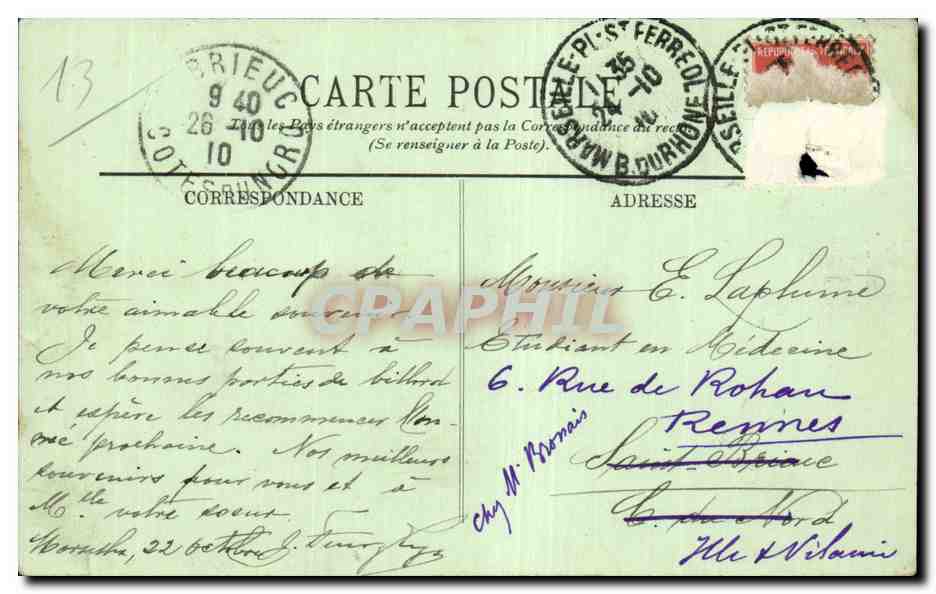 13
BRIEUC
9 40
26 - 10
10
COTES DU NORD
CARTE POSTALE
MARSEILLE-PL. ST FERREOL
11 35
24 - 10
10
B. DU RHONE
REPUBLIQUE FRANCAISE
Tous les Pays étrangers n'acceptent pas la Correspondance au recto
(Se renseigner à la Poste).
CORRESPONDANCE
ADRESSE
CPAPHIL
Merci beaucoup de
votre aimable souvenir.
Je pense souvent à
nos bonnes parties de billard
et espère les recommencer l'an-
née prochaine. Nos meilleurs
souvenirs pour vous et à
Mlle votre sœur.
Marseille, 22 octobre J.
Monsieur E. Laplume
Etudiant en Médecine
6. Rue de Rohan
Rennes
chez Mr
Saint-Brieuc
C. du Nord
Ille & Vilaine